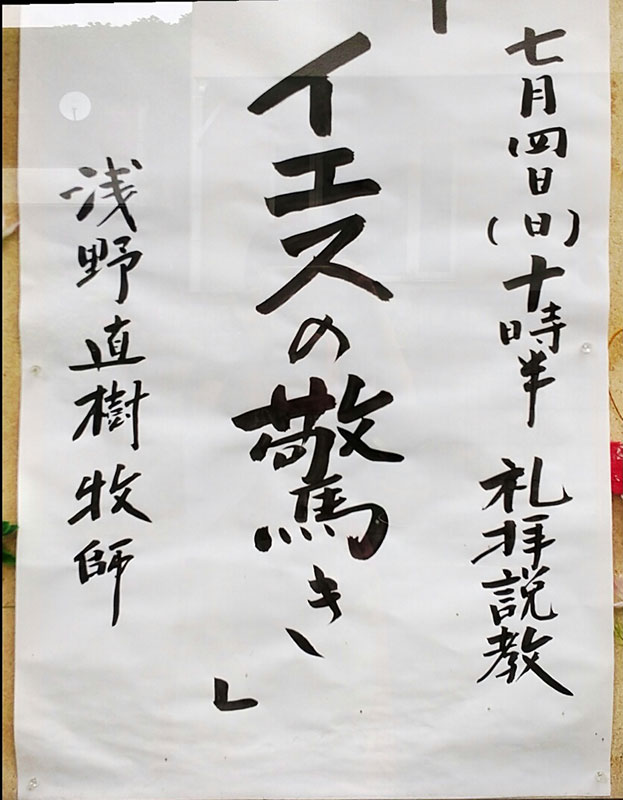 七月四日(日)十時半 礼拝説教
「イエスの驚き」
浅野直樹牧師